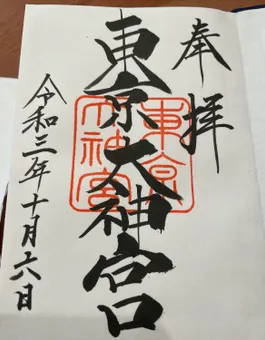 奉拝
東京大神宮
東京大神宮
令和三年十月六日